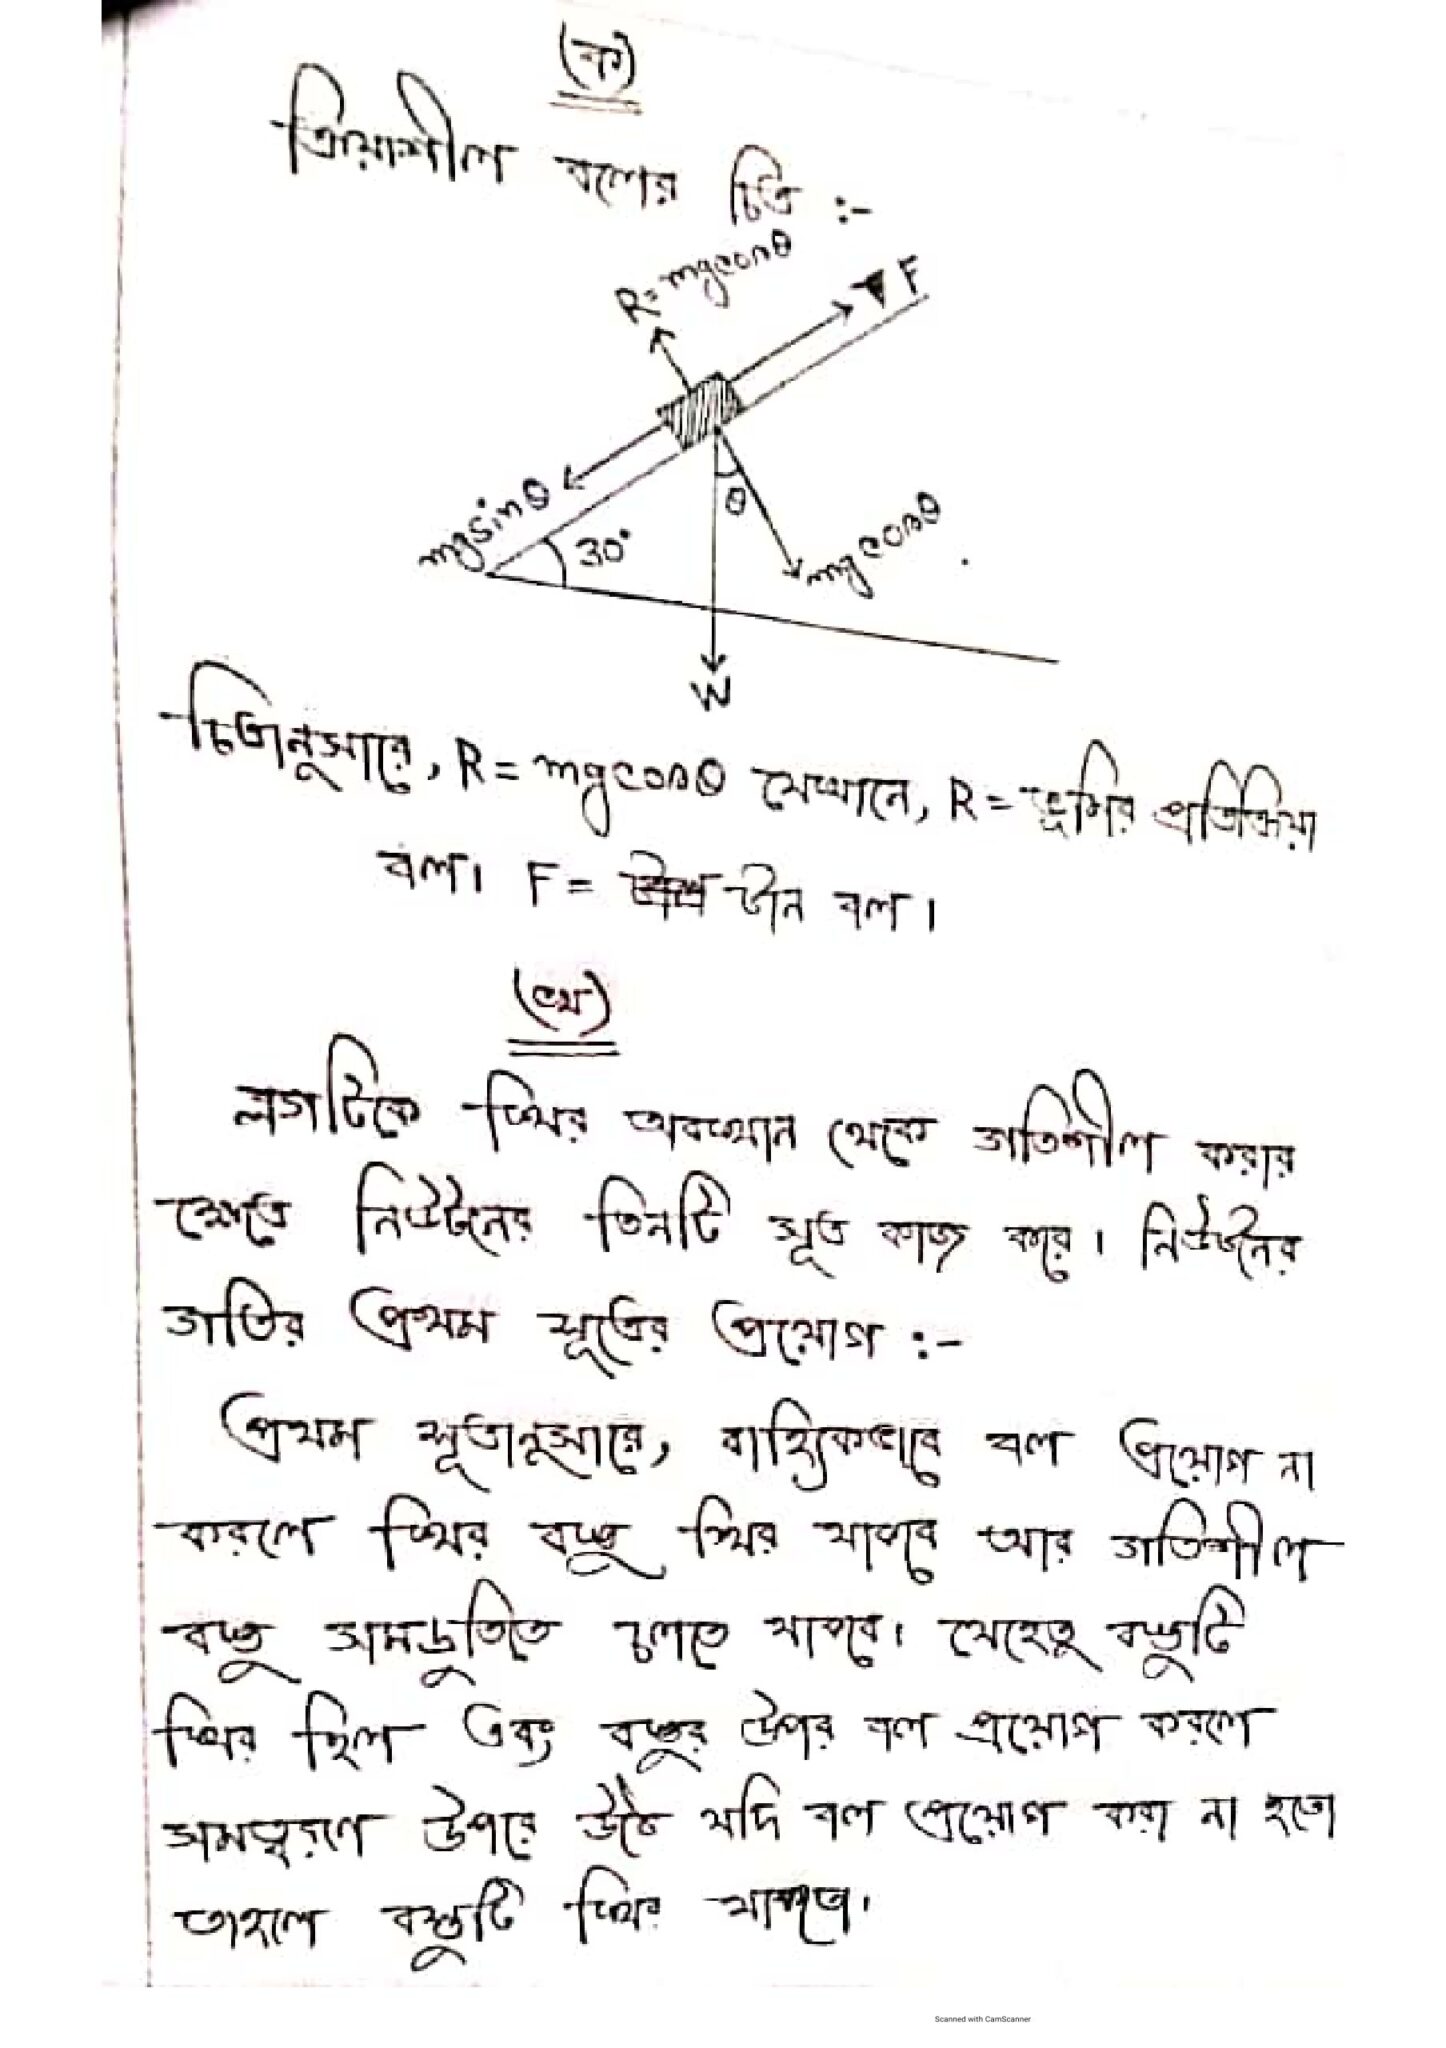 (ক)
ক্রিয়াশীল বলের চিত্র :-
R = mgcosθ
F
mgsinθ
30°
θ
mgcosθ
W
চিত্রানুসারে, R = mgcosθ যেখানে, R = ভূমির প্রতিক্রিয়া
বল। F = টান বল।
(খ)
লগটিকে স্থির অবস্থান থেকে গতিশীল করার
ক্ষেত্রে নিউটনের তিনটি সূত্র কাজ করে। নিউটনের
গতির প্রথম সূত্রের প্রয়োগ :-
প্রথম সূত্রানুসারে, বাহ্যিকভাবে বল প্রয়োগ না
করলে স্থির বস্তু স্থির থাকবে আর গতিশীল
বস্তু সমদ্রুতিতে চলতে থাকবে। যেহেতু বস্তুটি
স্থির ছিল এবং বস্তুর উপর বল প্রয়োগ করলে
সমত্বরণে উপরে উঠে যদি বল প্রয়োগ করা না হতো
তাহলে বস্তুটি স্থির থাকতো।
Scanned with CamScanner